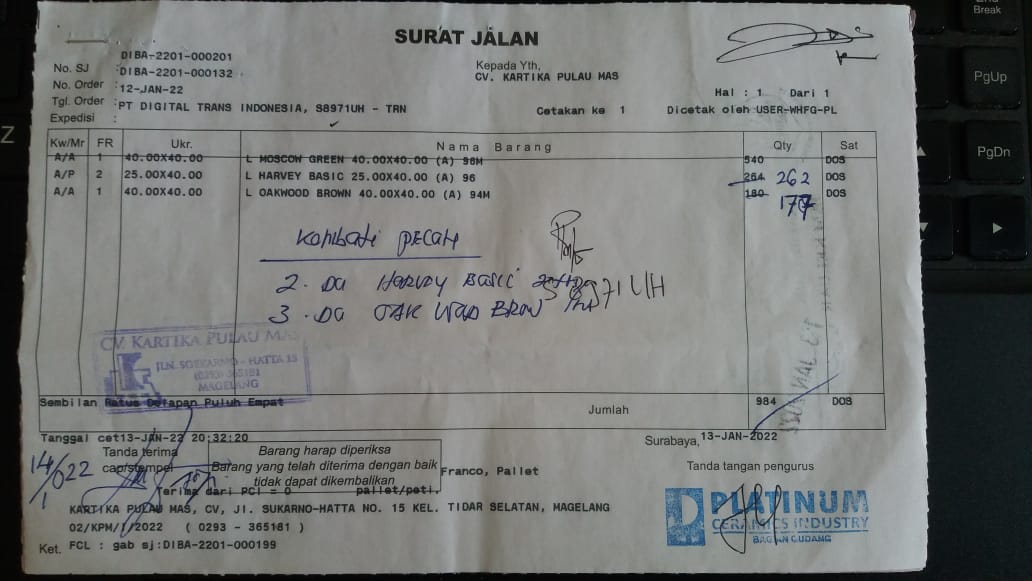 SURAT JALAN
No. SJ : DIBA-2201-000201
No. Order : DIBA-2201-000132
Tgl. Order : 12-JAN-22
Expedisi : PT DIGITAL TRANS INDONESIA, S8971UH - TRN
Kepada Yth,
CV. KARTIKA PULAU MAS
Hal : 1 Dari 1
Cetakan ke 1
Dicetak oleh :USER-WHFG-PL
Kw/Mr FR Ukr. Nama Barang Qty Sat
A/A 1 40.00X40.00 L MOSCOW GREEN 40.00X40.00 (A) 96M 540 DOS
A/P 2 25.00X40.00 L HARVEY BASIC 25.00X40.00 (A) 96 264 262 DOS
A/A 1 40.00X40.00 L OAKWOOD BROWN 40.00X40.00 (A) 94M 180 177 DOS
2. Da HARVEY BASIC
S 8971 UH
3. Da OAK WOD BROW
CV. KARTIKA PULAU MAS
JLN. SOEKARNO - HATTA 15
(0293) 365181
MAGELANG
Sembilan Ratus Delapan Puluh Empat
Jumlah 984 DOS
Tanggal cet13-JAN-22 20:32:20
Surabaya, 13-JAN-2022
Tanda terima
cap/stempel
14/1 022
Barang harap diperiksa
Barang yang telah diterima dengan baik
tidak dapat dikembalikan
Franco, Pallet
Tanda tangan pengurus
Terima dari PCI = 0 pallet/peti.
KARTIKA PULAU MAS, CV, Jl. SUKARNO-HATTA NO. 15 KEL. TIDAR SELATAN, MAGELANG
02/KPM/1/2022 ( 0293 - 365181 )
Ket. FCL : gab sj:DIBA-2201-000199
PLATINUM
CERAMICS INDUSTRY
BAGAN GUDANG
End
Break
PgUp
PgDn
Z